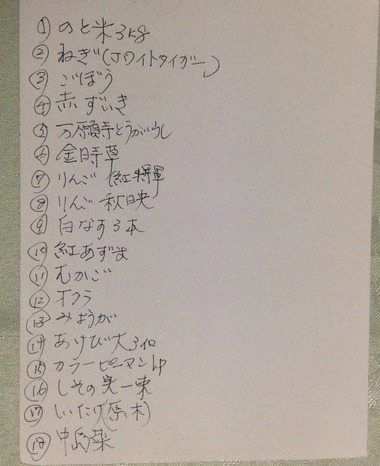 ① のと米3kg
② ねぎ(ホワイトタイガー)
③ ごぼう
④ 赤ずいき
⑤ 万願寺とうがらし
⑥ 金時草
⑦ りんご 紅将軍
⑧ りんご 秋映
⑨ 白なす3本
⑩ 紅あずま
⑪ むかご
⑫ オクラ
⑬ みょうが
⑭ あけび大3個
⑮ カラーピーマン
⑯ しその実一束
⑰ いたけ(原木)
⑱ 中島菜